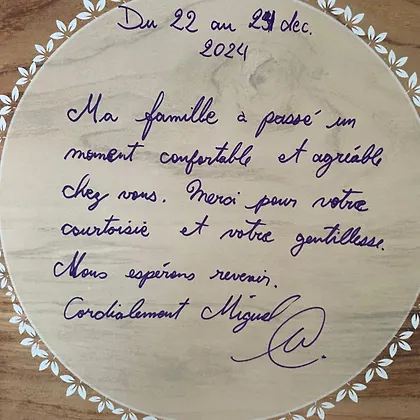 Du 22 au 24 dec.
2024
Ma famille a passé un
moment confortable et agréable
chez vous. Merci pour votre
courtoisie et votre gentillesse.
Nous espérons revenir.
Cordialement Miguel